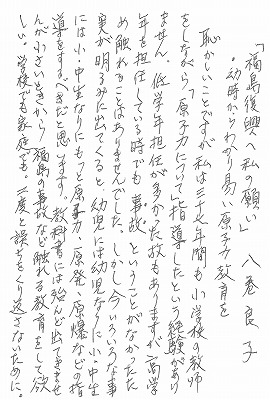 「福島復興へ私の願い」　八巻良子
幼時からわかり易い原子力教育を
恥かしいことですが私は三十七年間も小学校の教師
をしながら「原子力について」指導したという経験があり
ません。低学年担任が多かった故もありますが、高学
年を担任している時でも事故ということがなかったた
め触れることはありませんでした。しかし今いろいろな事
実が明るみに出てくると、幼児には幼児なりに、小・中生
には小・中生なりにもっと原子力、原発、原爆などの指
導をするべきだと思います。教科書には殆んど出てきませ
んが小さいときから福島の事故など触れる教育をして欲
しい。学校でも家庭でも。二度と誤ちをくり返さないために。